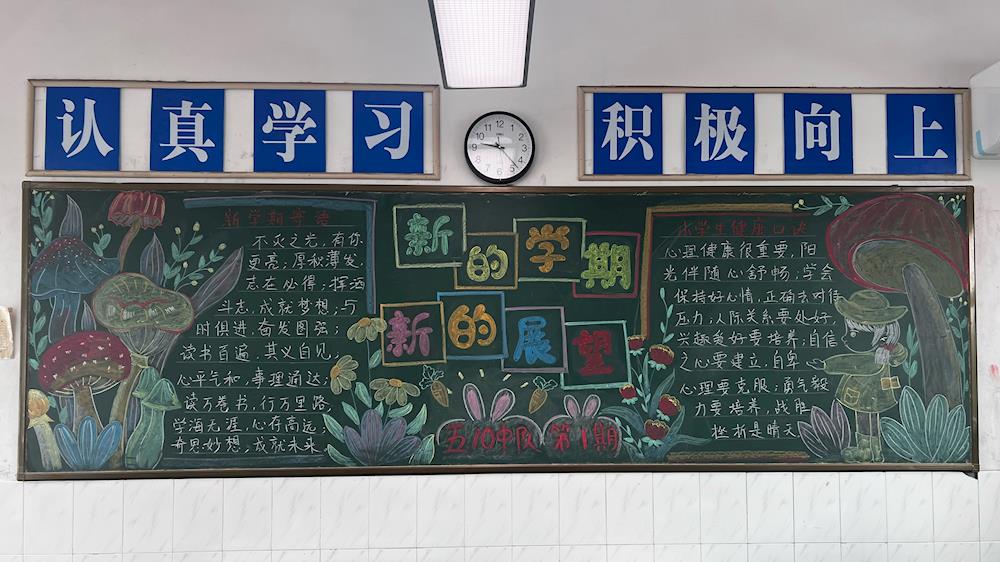 认真学习
积极向上
新学期寄语
不灭之光,有你
更亮;厚积薄发,
志在必得;挥洒
斗志,成就梦想;与
时俱进,奋发图强;
读书百遍,其义自见;
心平气和,事理通达;
读万卷书,行万里路,
学海无涯,心存高远;
奇思妙想,成就未来
新的学期
新的展望
五10中队
第1期
小学生健康口诀
心理健康很重要,阳
光伴随心舒畅;学会
保持好心情,正确去对待
压力;人际关系要处好
兴趣爱好要培养;自信
之心要建立,自卑
心理要克服;勇气毅
力要培养,战胜
挫折是晴天